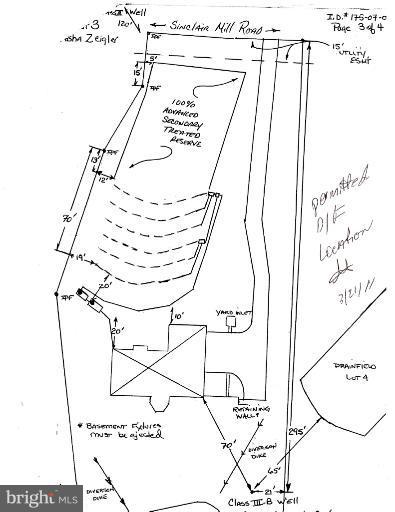 Well
120'
SINCLAIR MILL ROAD
I.D.# 175-07-0
Page 3 of 4
3
asha Zeigler
15'
UTILITY
ESMT
5'
15'
IPF
100%
ADVANCED
SECONDARY
TREATED
RESERVE
IPF
13'
12'
70'
permitted
D/F
Location
3/21/11
19'
20'
IPF
20'
10'
YARD INLET
DRAINFIELD
LOT 4
RETAINING
WALLS
* BASEMENT FIXTURES
must be ejected
70'
DIVERSION
DIKE
295'
65'
DIVERSION
DIKE
21'
CLASS III-B WELL
bright MLS